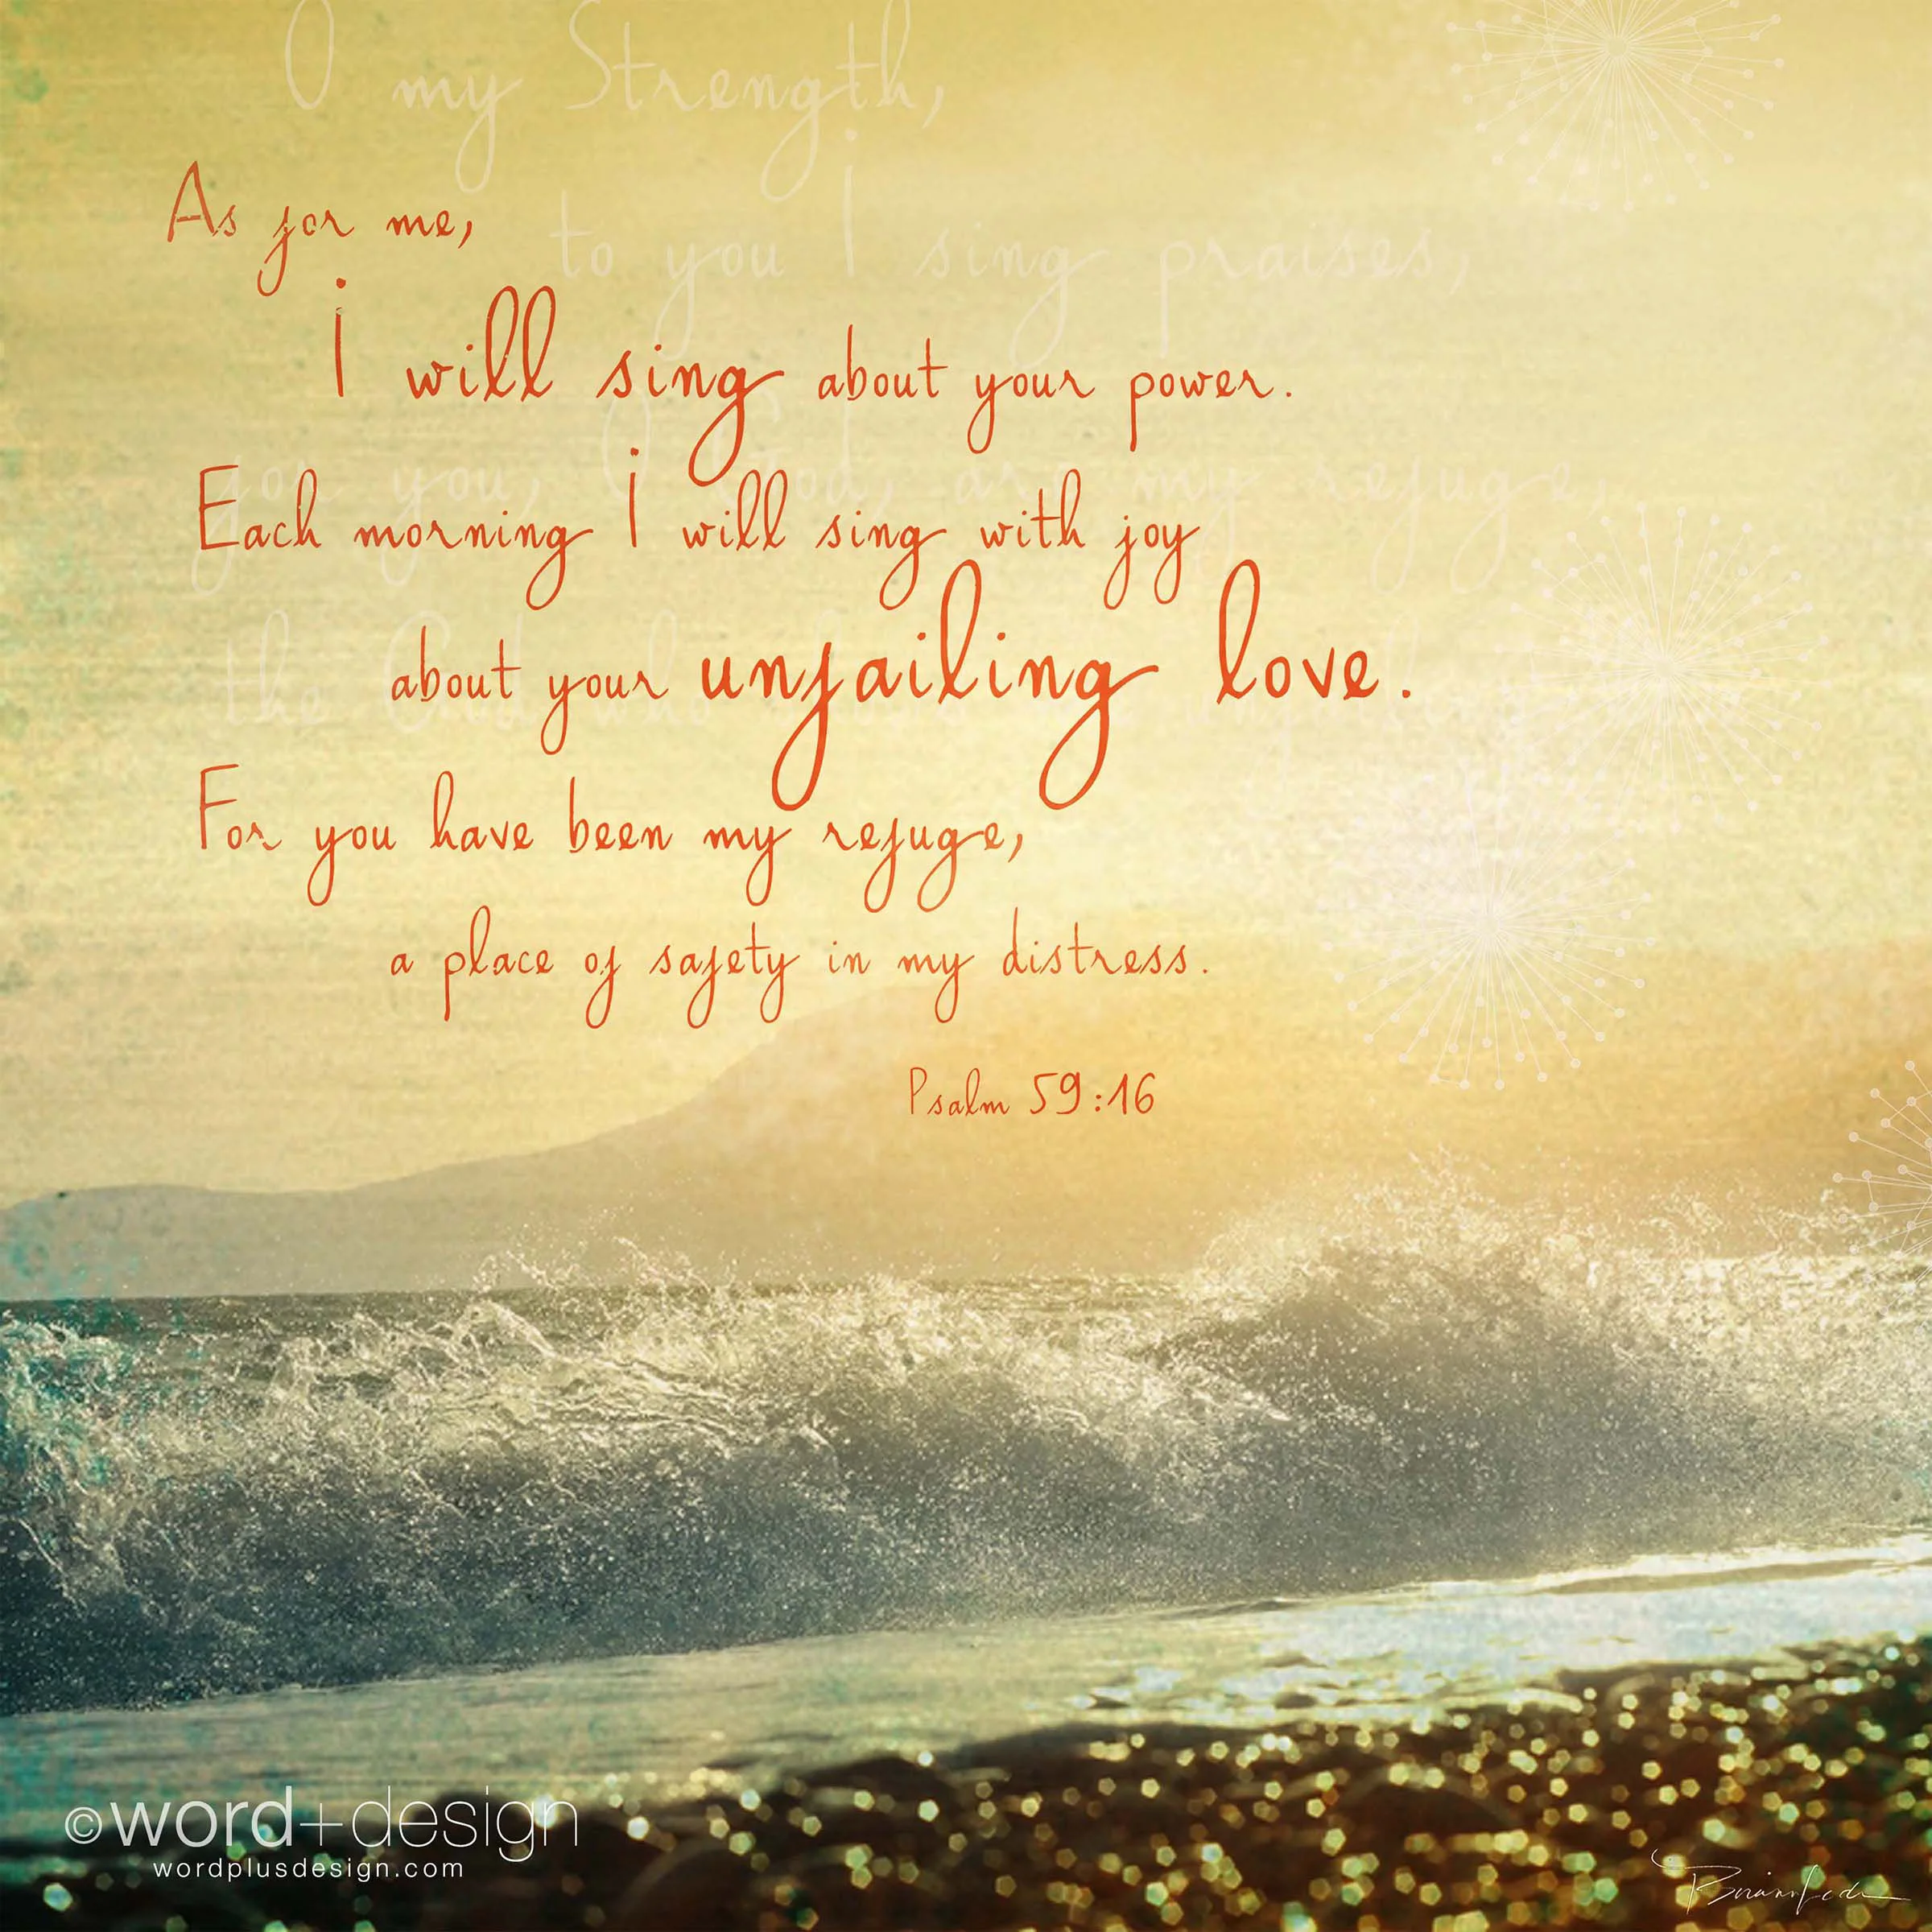 O my Strength,
As for me,
to you I sing praises,
I will sing about your power.
for you, O God, are my refuge,
Each morning I will sing with joy
about your unfailing love.
the God who
For you have been my refuge,
a place of safety in my distress.
Psalm 59:16
©word+design
wordplusdesign.com